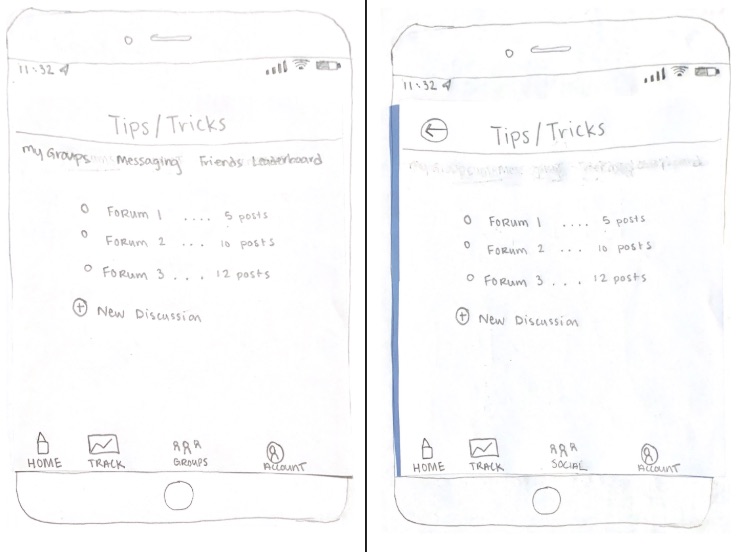 11:32
Tips/Tricks
My Groups Messaging Friends Leaderboard
Forum 1 .... 5 posts
Forum 2 ... 10 posts
Forum 3 ... 12 posts
New Discussion
HOME TRACK GROUPS ACCOUNT
11:32
Tips/Tricks
Forum 1 .... 5 posts
Forum 2 ... 10 posts
Forum 3 ... 12 posts
New Discussion
HOME TRACK SOCIAL ACCOUNT